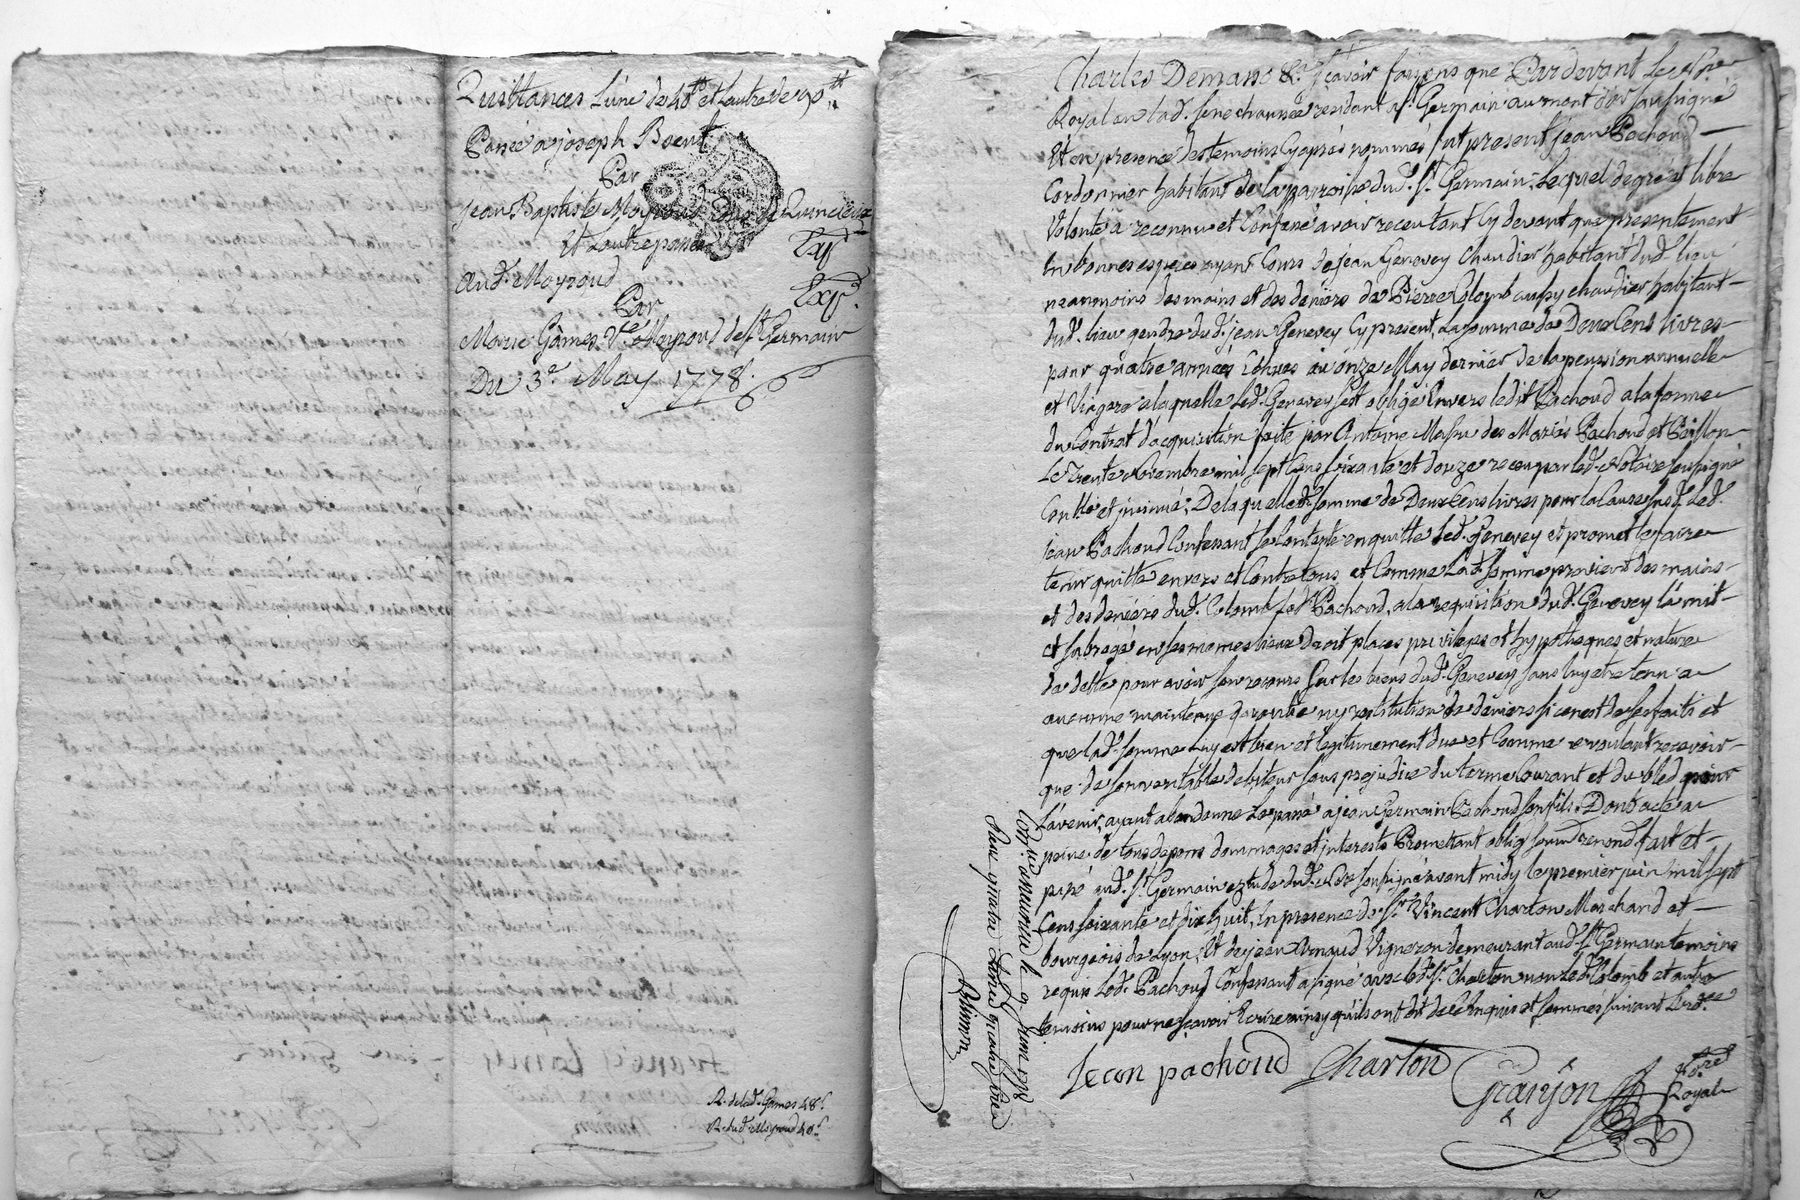 Quittances L'une de 48ᵗᵗ et Lautre de 90ᵗᵗ
Passée a joseph Boent
Par
jean Baptiste Moyroud de Quincieux
Et Lautre passée
Aud. Moyroud
Par
Marie Gâmes Vᵉ Moyroud de sᵗ Germain
Du 3ᵉ May 1778.
R. de lad. Games 48ˢ
R. dud. Moyroud 40ˢ
Charles Demans &ᵃ scavoir faisons que Pardevant Le Nore
Royal en lad. senechaussée residant a sᵗ Germain au mont d'or soussigné
Et en presence des temoins cy aprés nommés fut present jean Pachoud
Cordonnier habitant de la parroisse dud. sᵗ Germain, Lequel de gré et libre
Volonté a reconnu et Confessé avoir receu tant cy devant que presentement
En bonnes especes ayant Cours de jean Genevey Chandier habitant dud. lieu
neanmoins des mains et des deniers de Pierre Colomb aussy chandier habitant
dud. lieu gendre dud. jean Genevey Cy present, La somme de Deux Cens livres
pour quatre années Echues au onze May dernier de la pension annuelle
et Viagere a laquelle led. Genevey s'est obligé Envers ledit Pachoud a la forme
du Contrat d'acquisition faite par Antoine des Mariés Pachoud et
Le Trente Novembre mil sept Cens soixante et douze receu par led. Notaire soussigné
Conllé et jnsinué; De laquelle somme de Deux Cens livres pour la Cause susd. Led.
jean Pachoud Confessant se Contente en quitte led. Genevey et promet le faire
tenir quitte envers et Contre tous et Comme Lad. somme provient des mains
et des deniers dud. Colomb led. Pachoud, a la requisition dud. Genevey l'a mit
et subrogé en ses memes lieux droit places privileges et hypotheques et nature
de dette pour avoir son recours sur les biens dud. Genevey sans luy etre tenu a
aucune maintenue garentie ny restitution de deniers si ce n'est de ses faits et
que lad. somme luy est bien et legitimement due et Comme ne voulant recevoir
que de son veritable debiteur sans prejudice du terme Courant et du bled pour
L'avenir, ayant abandonné Le passé a jean Germain Pachoud son fils. Dont acte a
peine de tous depens dommages et jnterests Promettant oblig renond fait et
passé aud. sᵗ Germain etude dud. Nore soussigné avant midy le premier juin mil sept
Cens soixante et dix huit, En presence de sʳ Vincent Charton Marchand et
bourgeois de Lyon, Et de jean Arnaud Vigneron demeurant aud. sᵗ Germain temoins
requis Led. Pachoud Confessant a signé avec led. sʳ Charton non led. Colomb et autre
temoins pour ne scavoir Ecrire ainsy qu'ils ont dit de ce Enquis et sommés suivant L'ordᶜᵉ
jean pachoud Charton Granjon Nore Royal
a neuville le 9 juin 1778